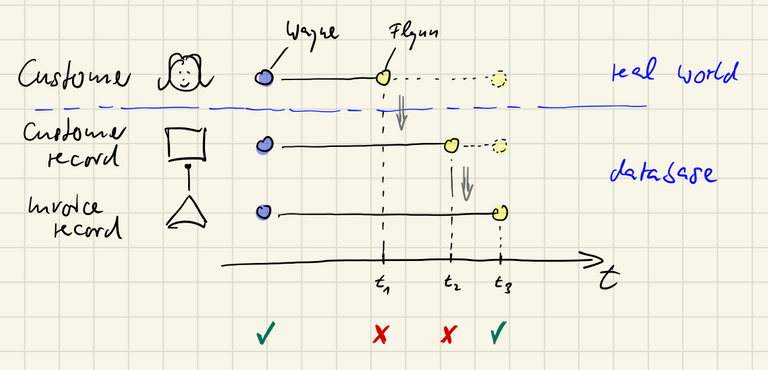 Wayne
Flynn
Customer
real world
Customer
record
database
Invoice
record
t1
t2
t3
t
✓ ✗ ✗ ✓